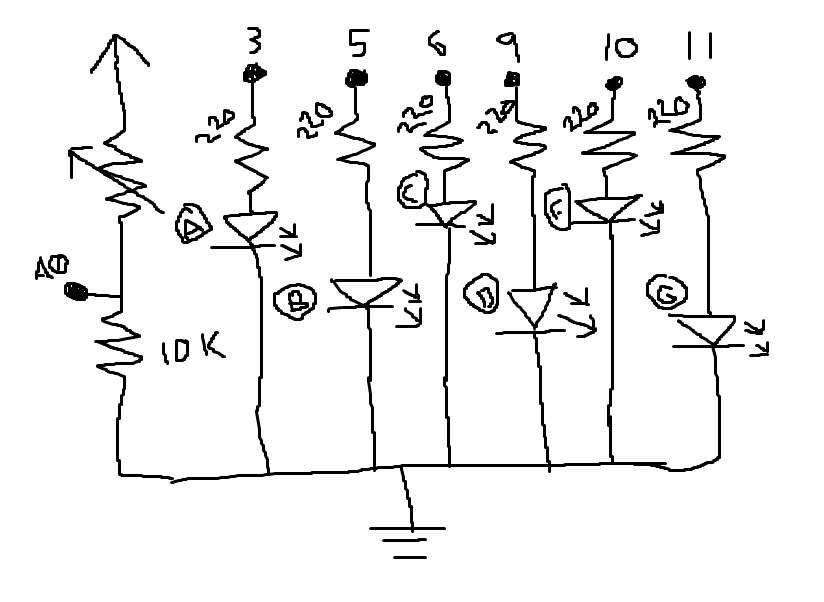 3 5 6 9 10 11
220 220 220 220 220 220
C C
B D G
A0
10K